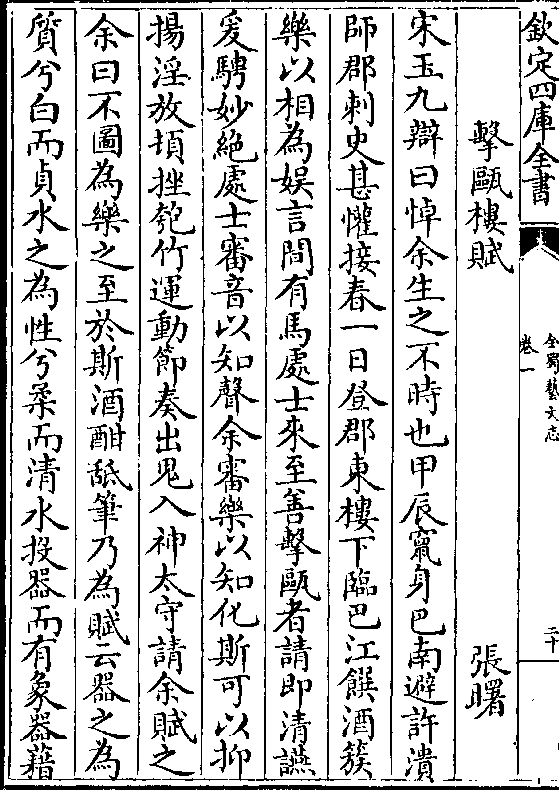 欽定四庫全書
全蜀藝文志
卷一
二十
擊甌樓賦
張曙
宋玉九辯曰悼余生之不時也甲辰竄身巴南避許潰
師郡刺史甚懽接春一日登郡東樓下臨巴江饌酒簇
樂以相為娛言間有馬處士來至善擊甌者請即清讌
爰騁妙絶處士審音以知聲余審樂以知化斯可以抑
揚淫放頓挫匏竹運動節奏出鬼入神太守請余賦之
余曰不圖為樂之至於斯酒酣舐筆乃為賦云器之為
質兮白而貞水之為性兮柔而清水投器而有象器藉